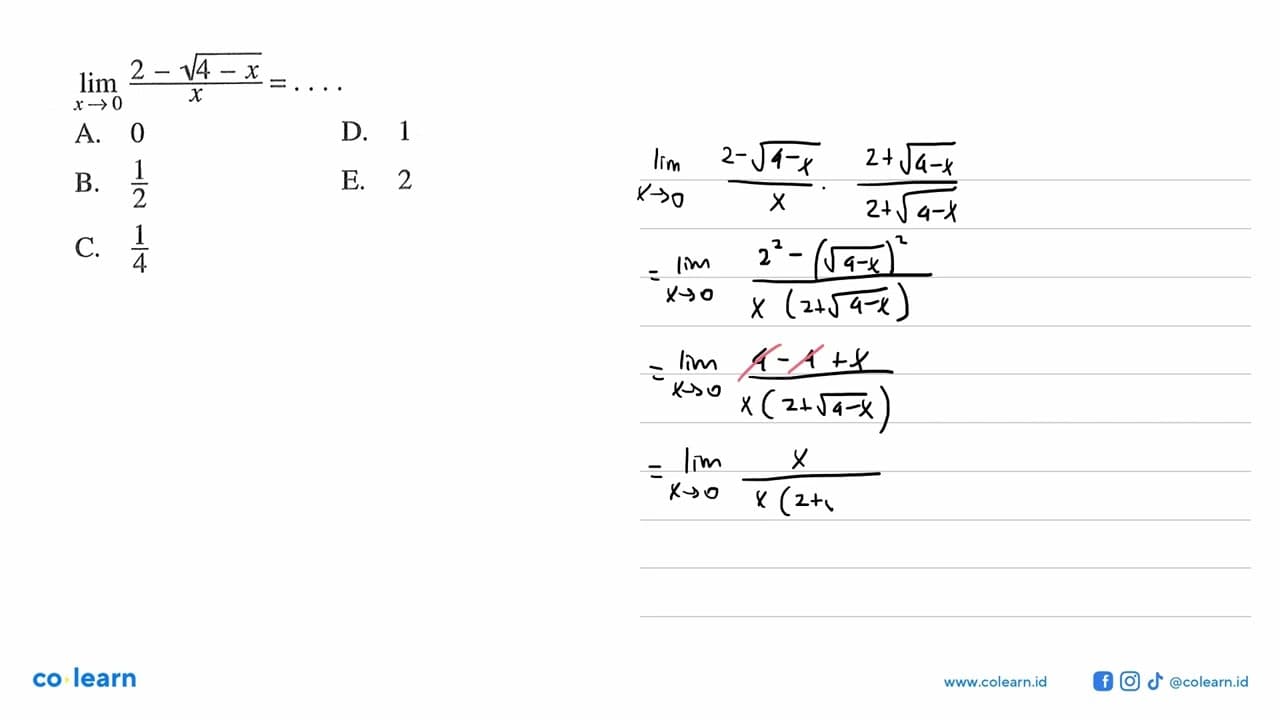 lim x→0 (2 − √(4 − x))/x = . . . .
A. 0
B. 1/2
C. 1/4
D. 1
E. 2
lim x→0 (2−√(4−x))/x · (2+√(4−x))/(2+√(4−x))
= lim x→0 (2² − (√(4−x))²)/(x (2+√(4−x)))
= lim x→0 (4 − 4 + x)/(x (2+√(4−x)))
= lim x→0 x/(x (2+
co learn
www.colearn.id
@colearn.id